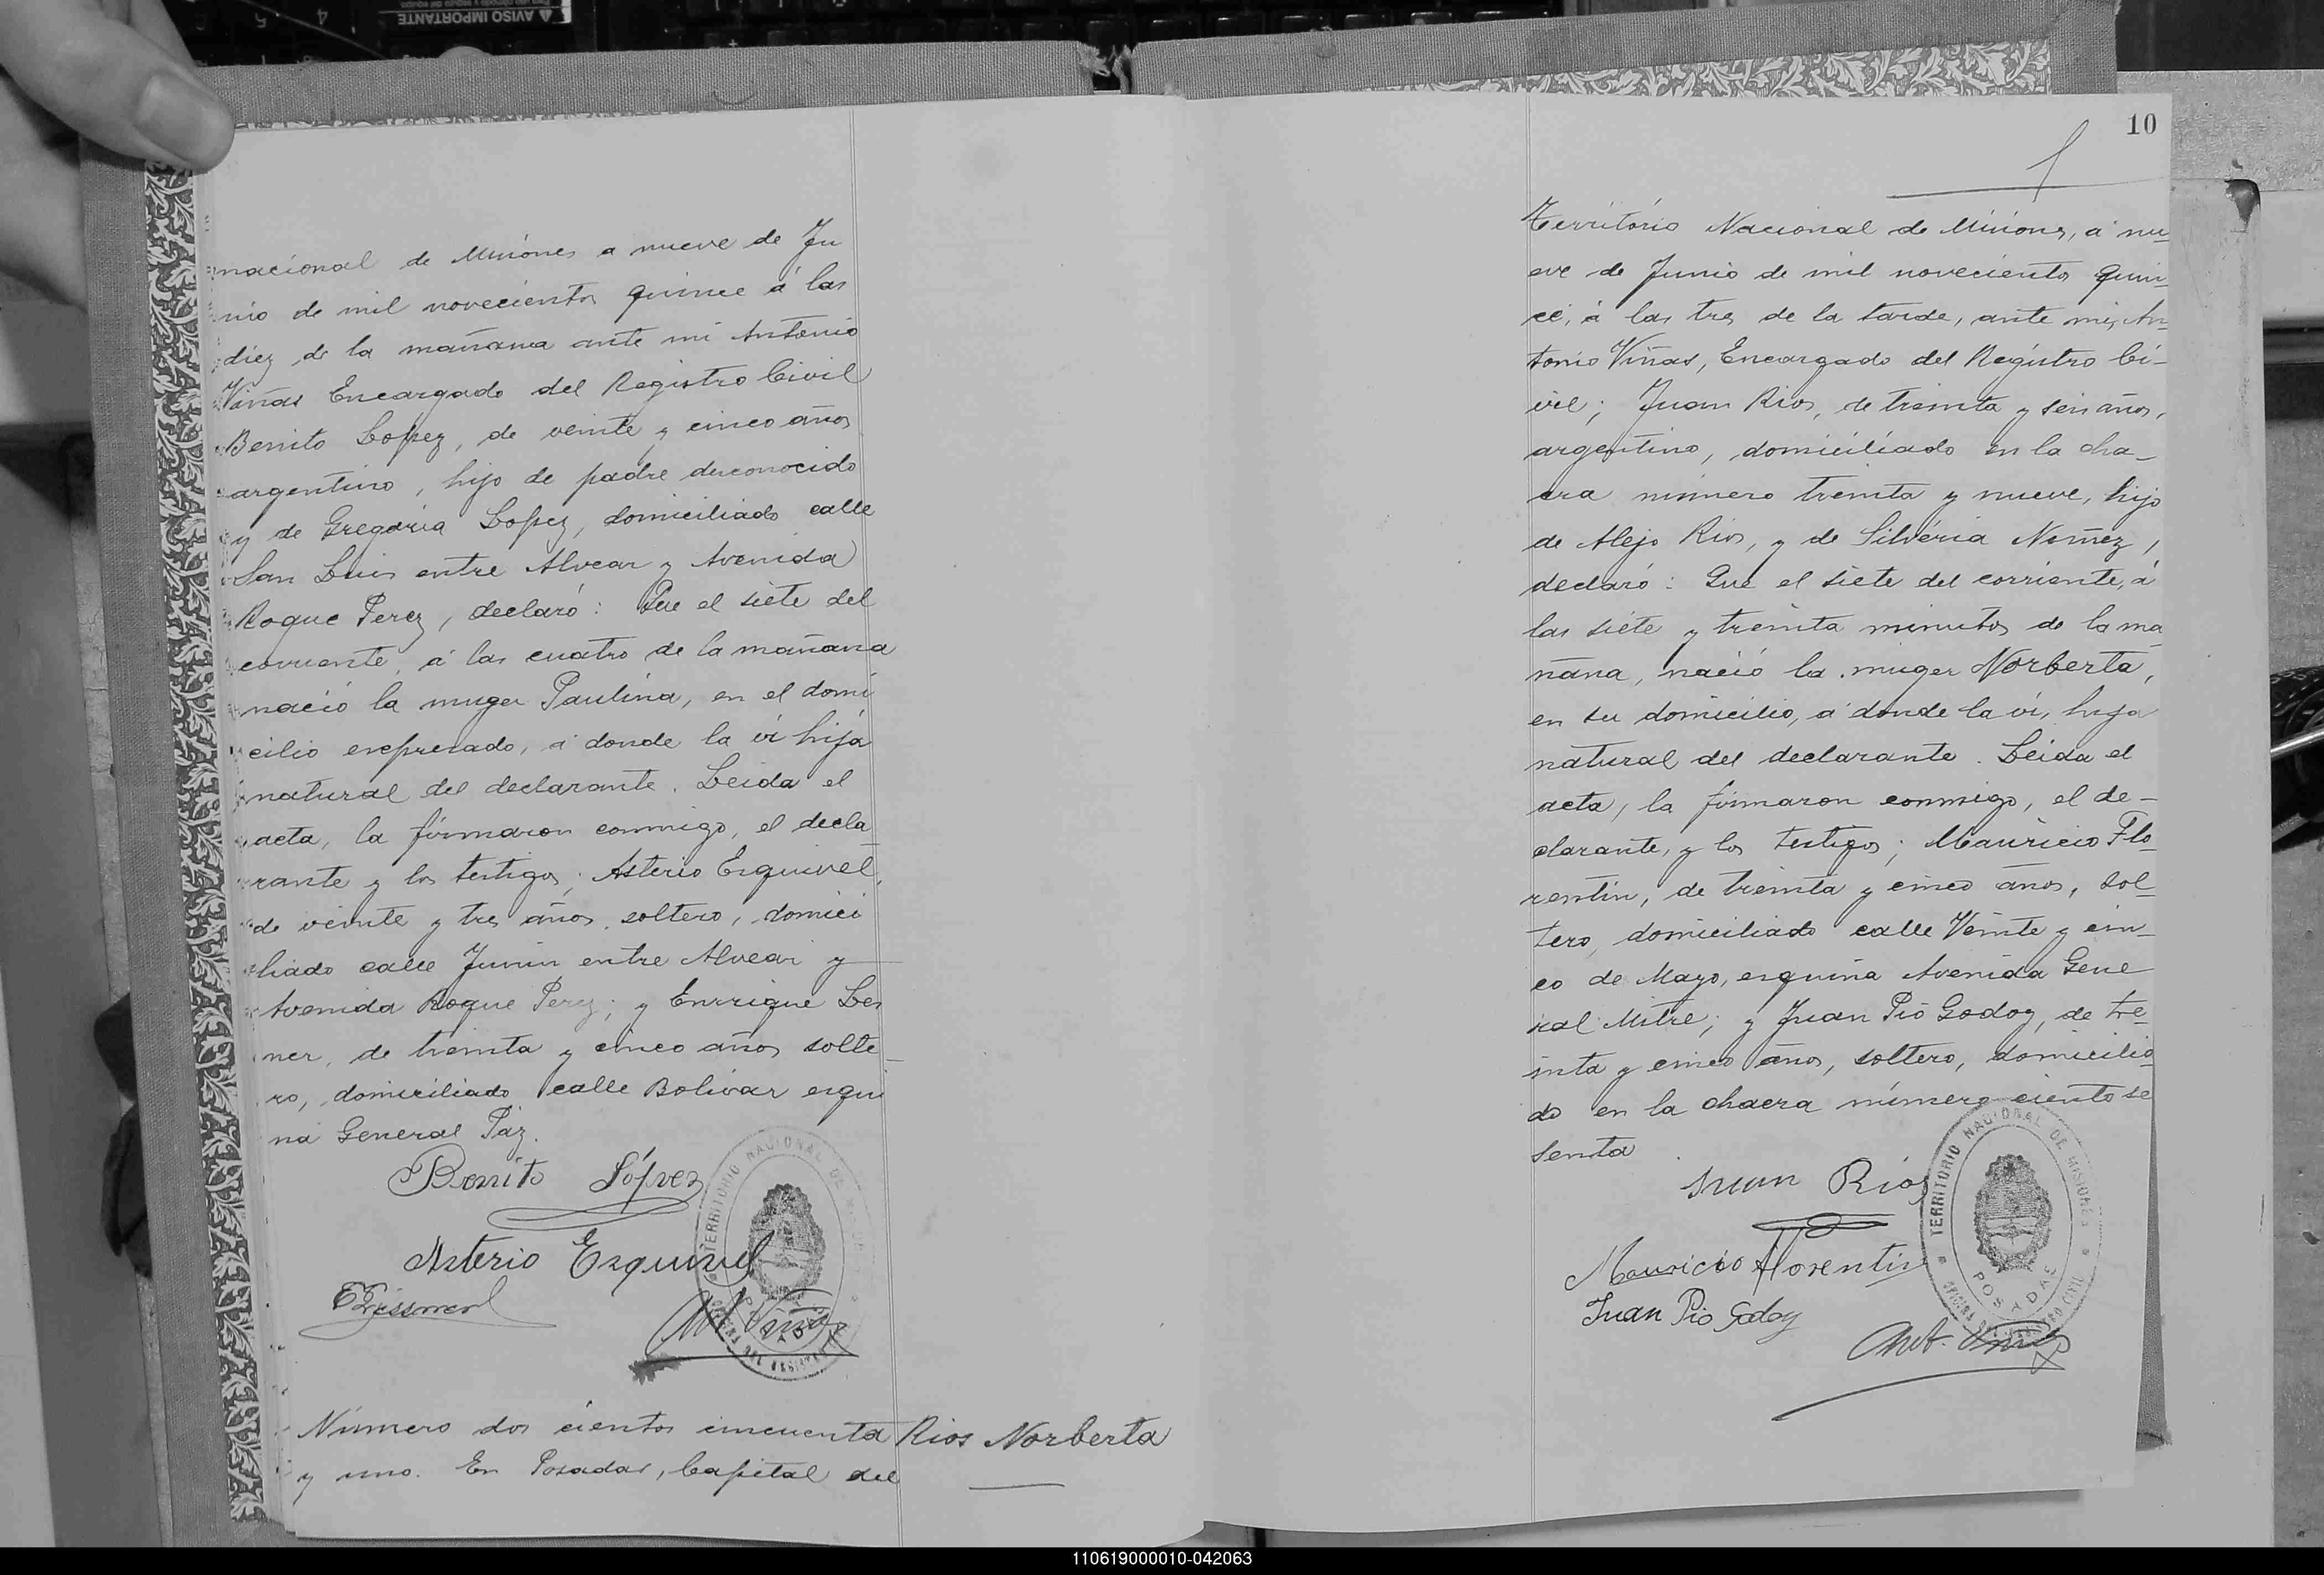 AVISO IMPORTANTE
nacional de Misiones a nueve de Ju
nio de mil novecientos quince á las
diez de la mañana ante mi Antonio
Viñas Encargado del Registro Civil
Benito Lopez, de veinte y cinco años
argentino, hijo de padre desconocido
y de Gregoria Lopez, domiciliado calle
San Luis entre Alvear y Avenida
Roque Perez, declaró: Que el siete del
corriente, á las cuatro de la mañana
nació la muger Paulina, en el domi
cilio expresado, á donde la ví hija
natural del declarante. Leida el
acta, la firmaron conmigo, el decla
rante y los testigos; Asterio Esquivel,
de veinte y tres años, soltero, domici
liado calle Junin entre Alvear y
Avenida Roque Perez; y Enrrique Les
ner, de treinta y cinco años solte
ro, domiciliado calle Bolivar esqui
na General Paz.
Benito López
Asterio Esquivel
Ant Viñas
Número dos cientos cincuenta
y uno. En Posadas, Capital del
Rios Norberta
10
Território Nacional de Misiones, á nu-
eve de Junio de mil novecientos quin-
ce, á las tres de la tarde, ante mi, An-
tonio Viñas, Encargado del Registro Ci-
vil; Juan Rios, de treinta y seis años,
argentino, domiciliado en la cha-
cra número treinta y nueve, hijo
de Alejo Rios, y de Silvéria Nuñez,
declaró: Que el siete del corriente, á
las siete y treinta minutos de la ma
ñana, nació la muger Norberta,
en su domicilio, á donde la ví, hija
natural del declarante. Leida el
acta, la firmaron conmigo, el de-
clarante, y los testigos; Mauricio Flo-
rentin, de treinta y cinco años, sol-
tero, domiciliado calle Veinte y cin-
co de Mayo, esquina Avenida Gene
ral Mitre; y Juan Pio Godoy, de tre-
inta y cinco años, soltero, domicilia-
do en la chacra número ciento se
senta
Juan Rios
Mauricio Florentin
Juan Pio Godoy
Ant. Viñas
TERRITORIO NACIONAL DE MISIONES
POSADAS
OFICINA DEL REGISTRO CIVIL
110619000010-042063